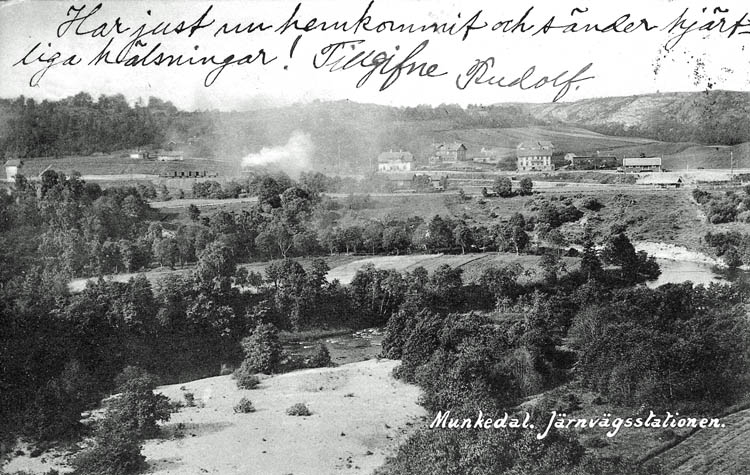 Har just nu hemkommit och sänder hjärt-
liga hälsningar! Tillgifne Rudolf.
Munkedal. Järnvägsstationen.